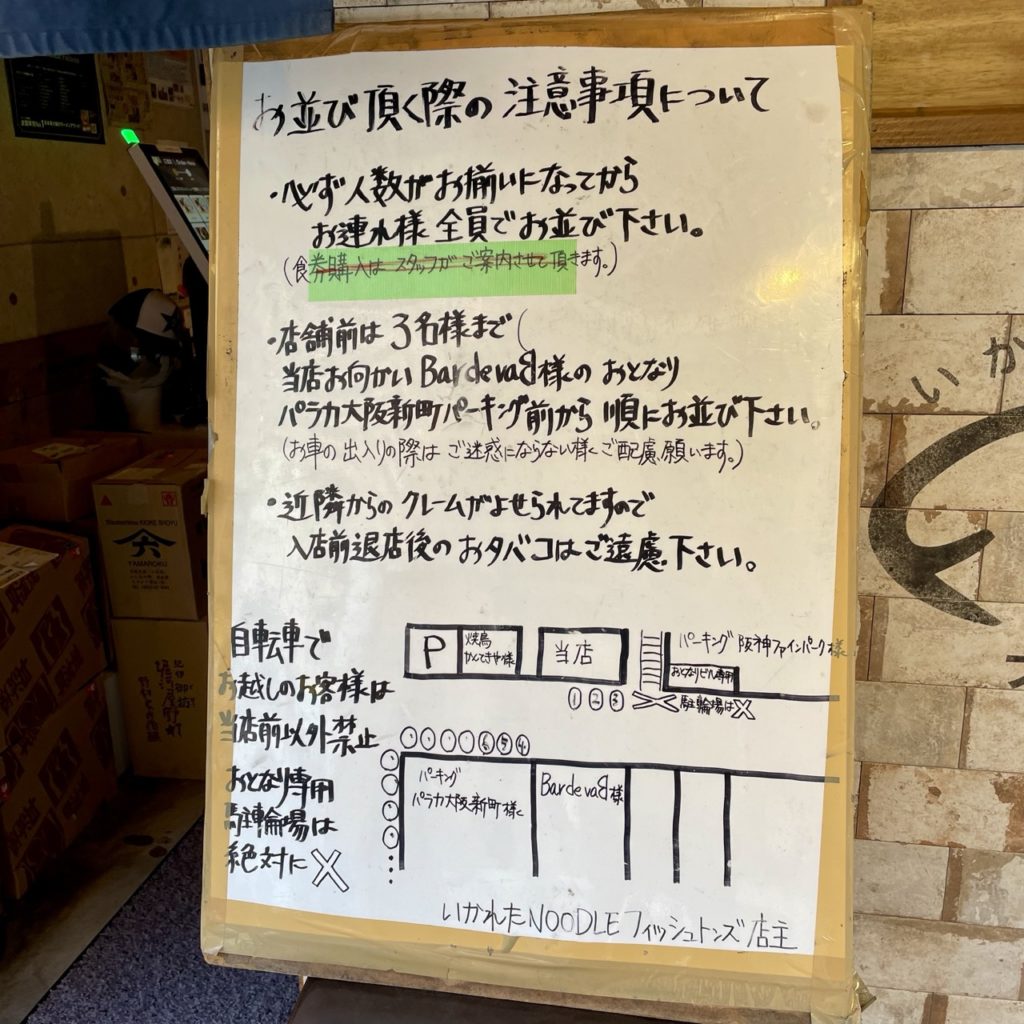 お並び頂く際の注意事項について
・必ず人数がお揃いになってから
お連れ様全員でお並び下さい。
(食券購入はスタッフがご案内させて頂きます。)
・店舗前は3名様まで(
当店お向かいBardevaB様のおとなり
パラカ大阪新町パーキング前から順にお並び下さい。
(お車の出入りの際はご迷惑にならない様ご配慮願います。)
・近隣からのクレームがよせられてますので
入店前退店後のおタバコはご遠慮下さい。
自転車で
お越しのお客様は
当店前以外禁止
おとなり専用
駐輪場は
絶対に×
P
焼鳥
かんてきや様
当店
パーキング 阪神ファインパーク様
おとなりビル専用
駐輪場は×
① ② ③
⑥ ⑤ ④
パーキング
パラカ大阪新町様
BardevaB様
いかれたNOODLEフィッシュトンズ 店主
いか
YAMAROKU